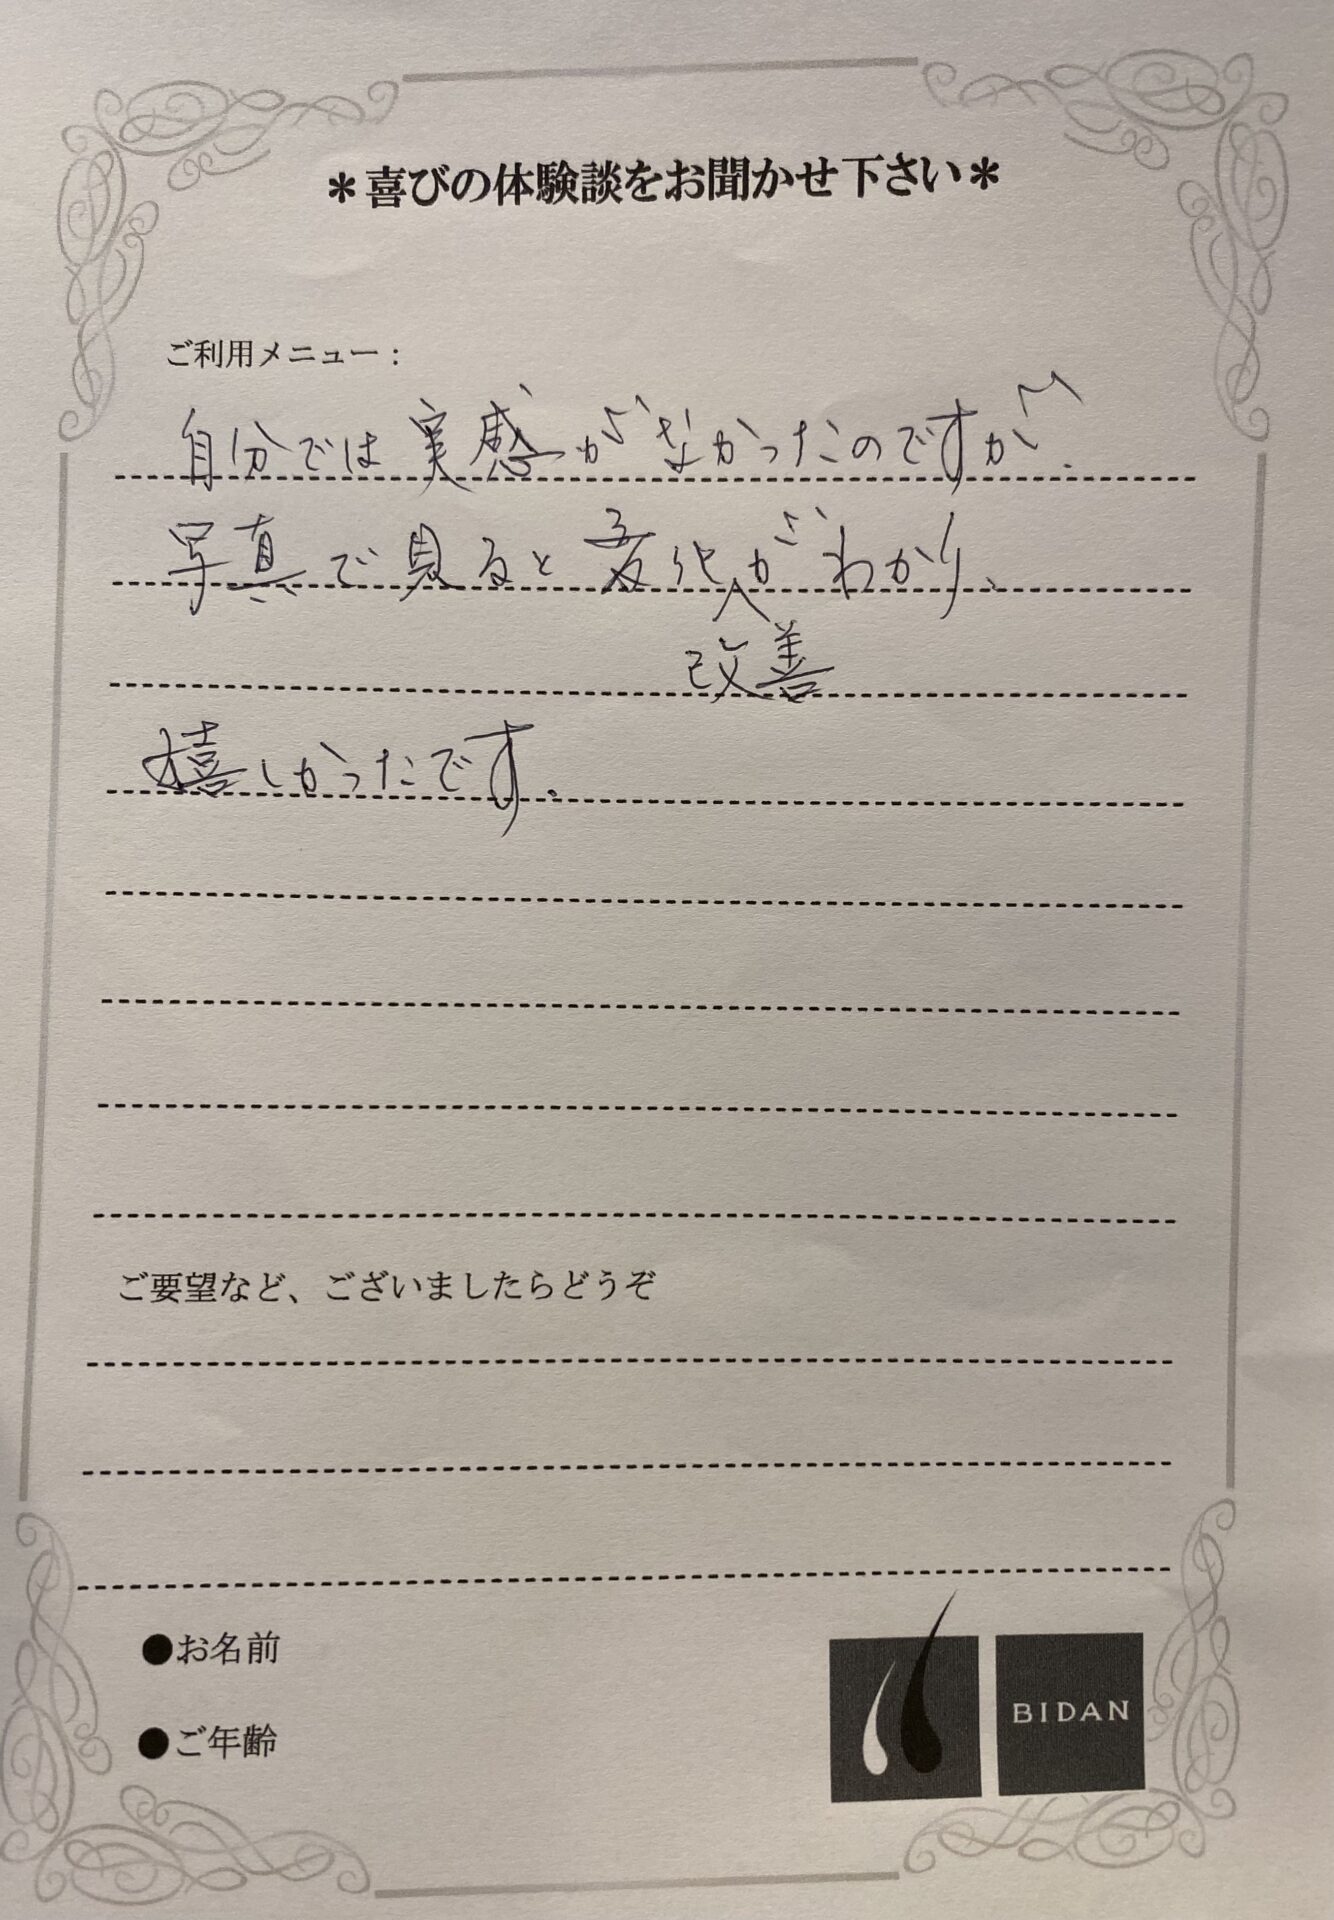 ＊喜びの体験談をお聞かせ下さい＊
ご利用メニュー：
自分では実感がなかったのですが、
写真で見ると変化がわかり、
改善
嬉しかったです。
ご要望など、ございましたらどうぞ
●お名前
●ご年齢
BIDAN